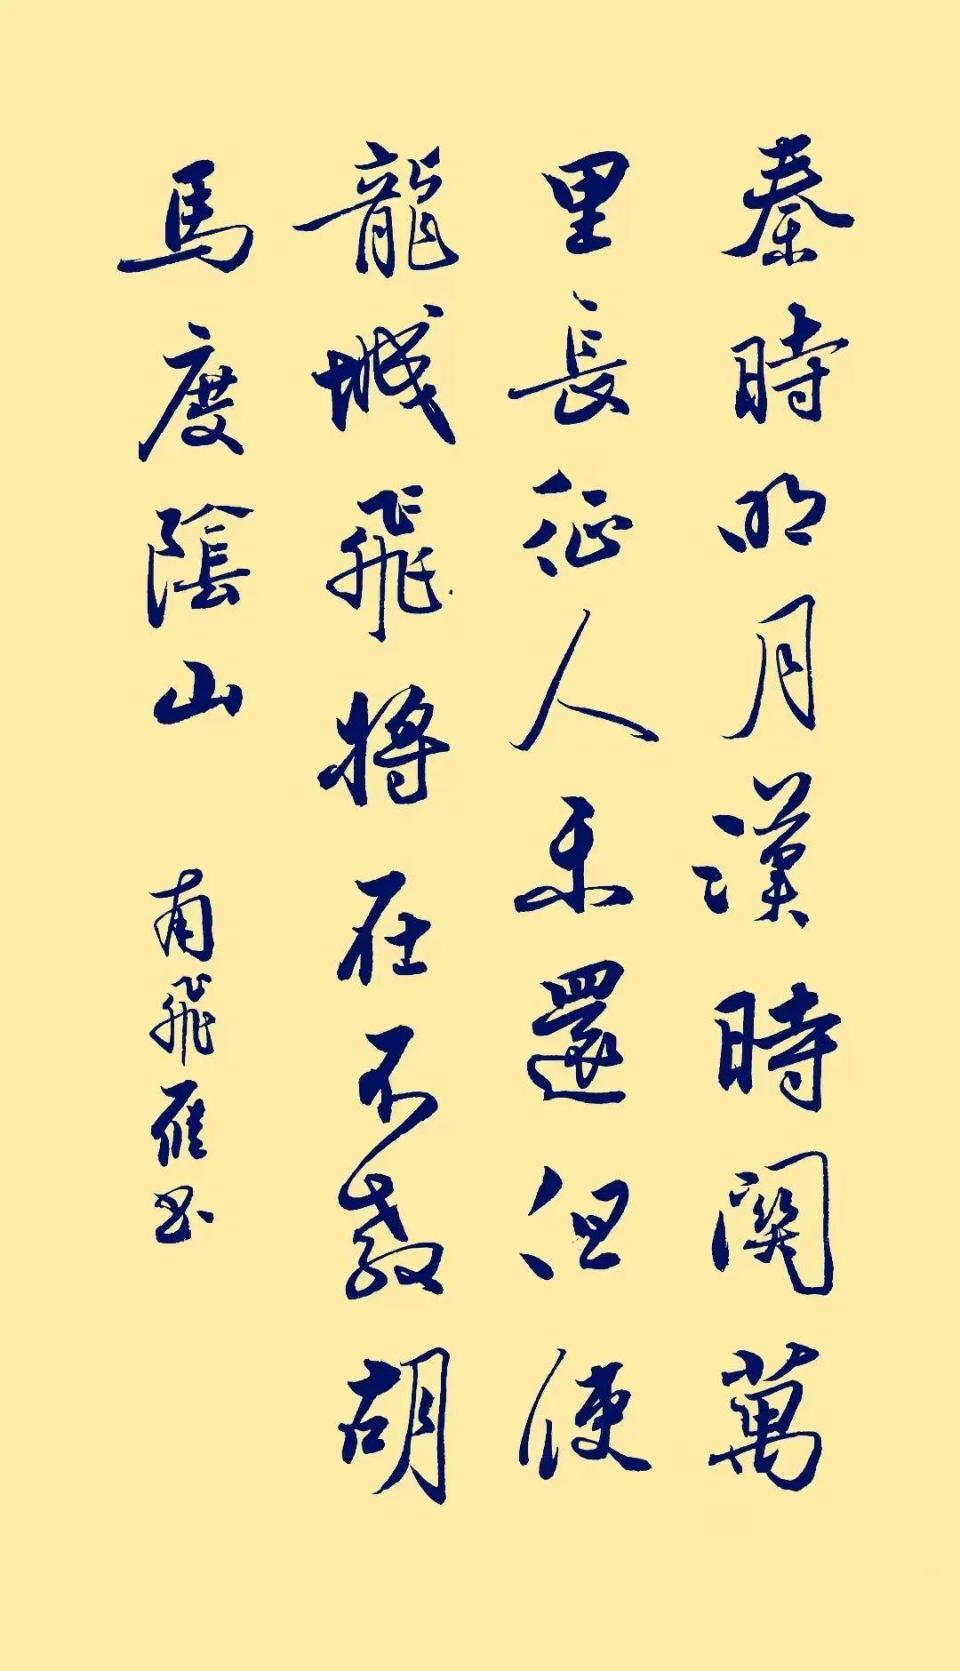 秦時明月漢時関萬
里長征人未還但使
龍城飛將在不教胡
馬度陰山
南飛雁书